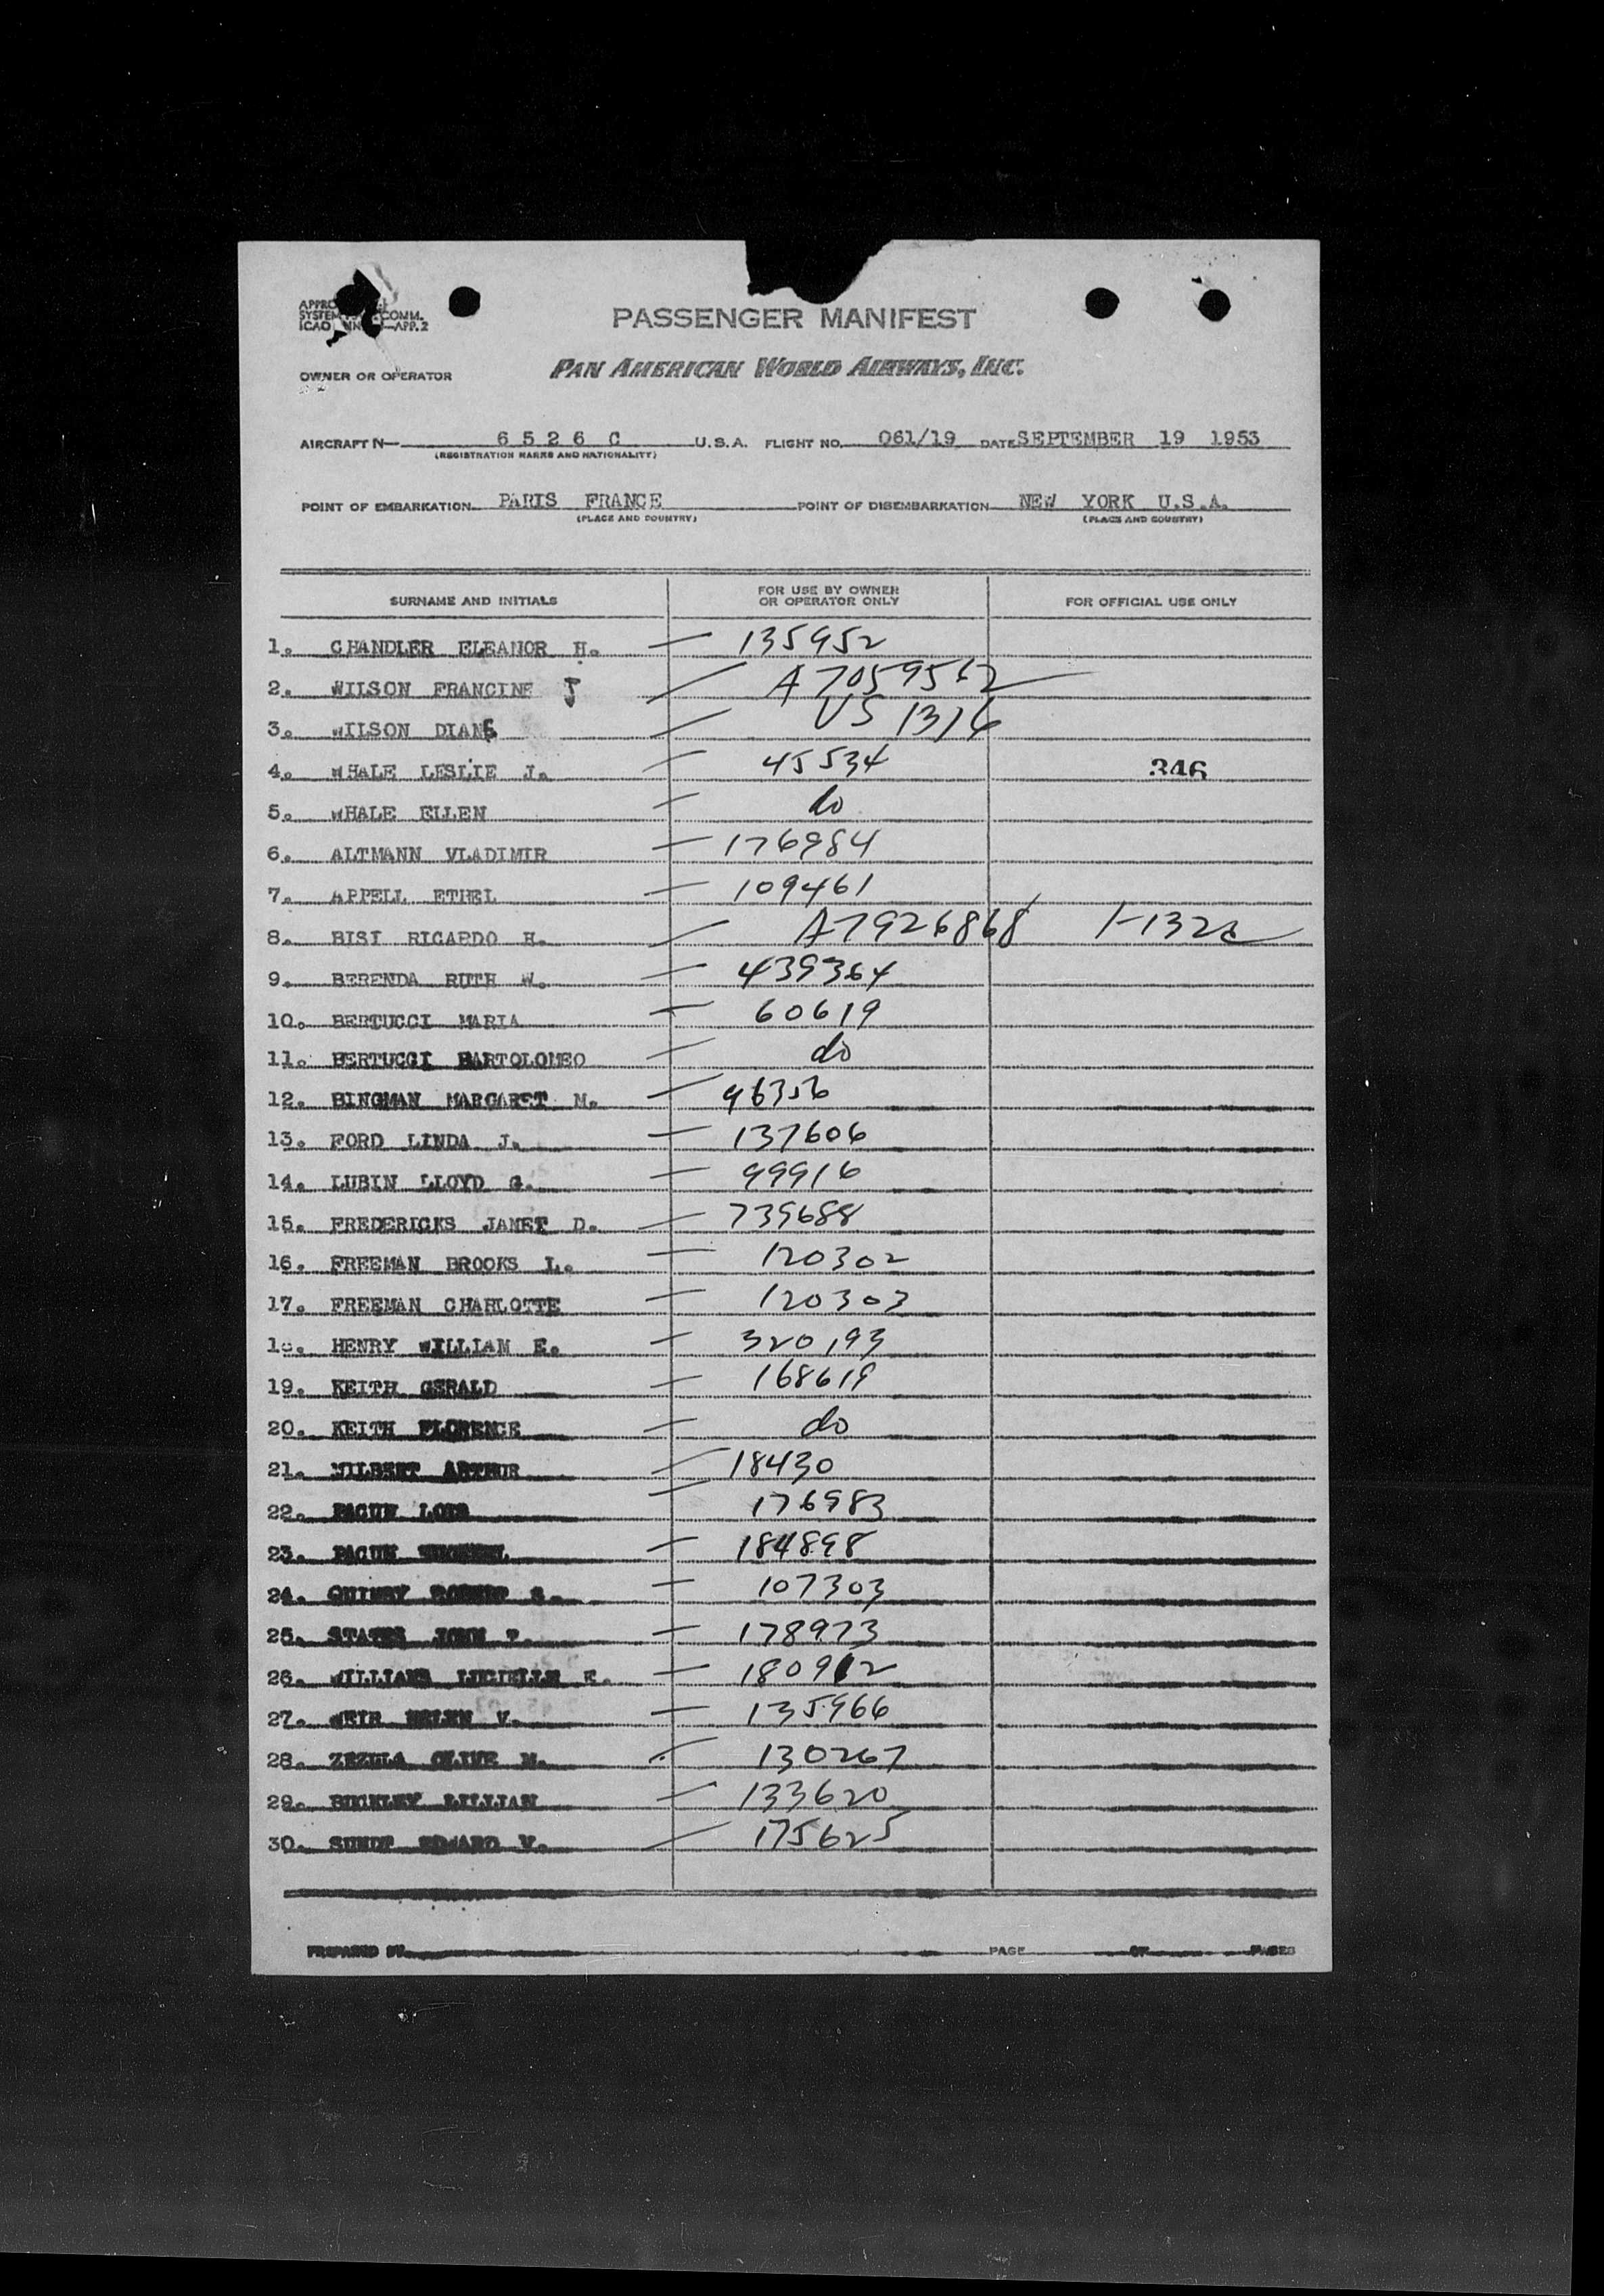 PASSENGER MANIFEST
OWNER OR OPERATOR PAN AMERICAN WORLD AIRWAYS, INC.
AIRCRAFT N— 6526 C U.S.A. FLIGHT NO. 061/19 DATE SEPTEMBER 19 1953
(REGISTRATION MARKS AND NATIONALITY)
POINT OF EMBARKATION PARIS FRANCE POINT OF DISEMBARKATION NEW YORK U.S.A.
(PLACE AND COUNTRY) (PLACE AND COUNTRY)
SURNAME AND INITIALS FOR USE BY OWNER OR OPERATOR ONLY FOR OFFICIAL USE ONLY
1. CHANDLER ELEANOR H. — 135952
2. WILSON FRANCINE J — A7059562
3. WILSON DIANE — US 1316
4. WHALE LESLIE J. — 45534 346
5. WHALE ELLEN — do
6. ALTMANN VLADIMIR — 176984
7. APPELL ETHEL — 109461
8. BISI RICARDO H. — A7926868 I-132
9. BERENDA RUTH W. — 439364
10. BERTUCCI MARIA — 60619
11. BERTUCCI BARTOLOMEO — do
12. BINGMAN MARGARET M. — 96356
13. FORD LINDA J. — 137606
14. LUBIN LLOYD G. — 99916
15. FREDERICKS JANET D. — 739688
16. FREEMAN BROOKS L. — 120302
17. FREEMAN CHARLOTTE — 120303
18. HENRY WILLIAM E. — 320193
19. KEITH GERALD — 168619
20. KEITH FLORENCE — do
21. ARTHUR — 18430
22. PACUN LOIS — 176983
23. PACUN — 184898
24. QUIMBY ROBERT S. — 107303
25. STATES JOHN — 178973
26. WILLIAMS LUCIELLE E. — 180912
27. WEIR HELEN V. — 135966
28. ZEZULA OLIVE M. — 130267
29. BUCKLEY LILLIAN — 133620
30. SUNDT EDWARD V. — 175625
PREPARED BY PAGE OF PAGES